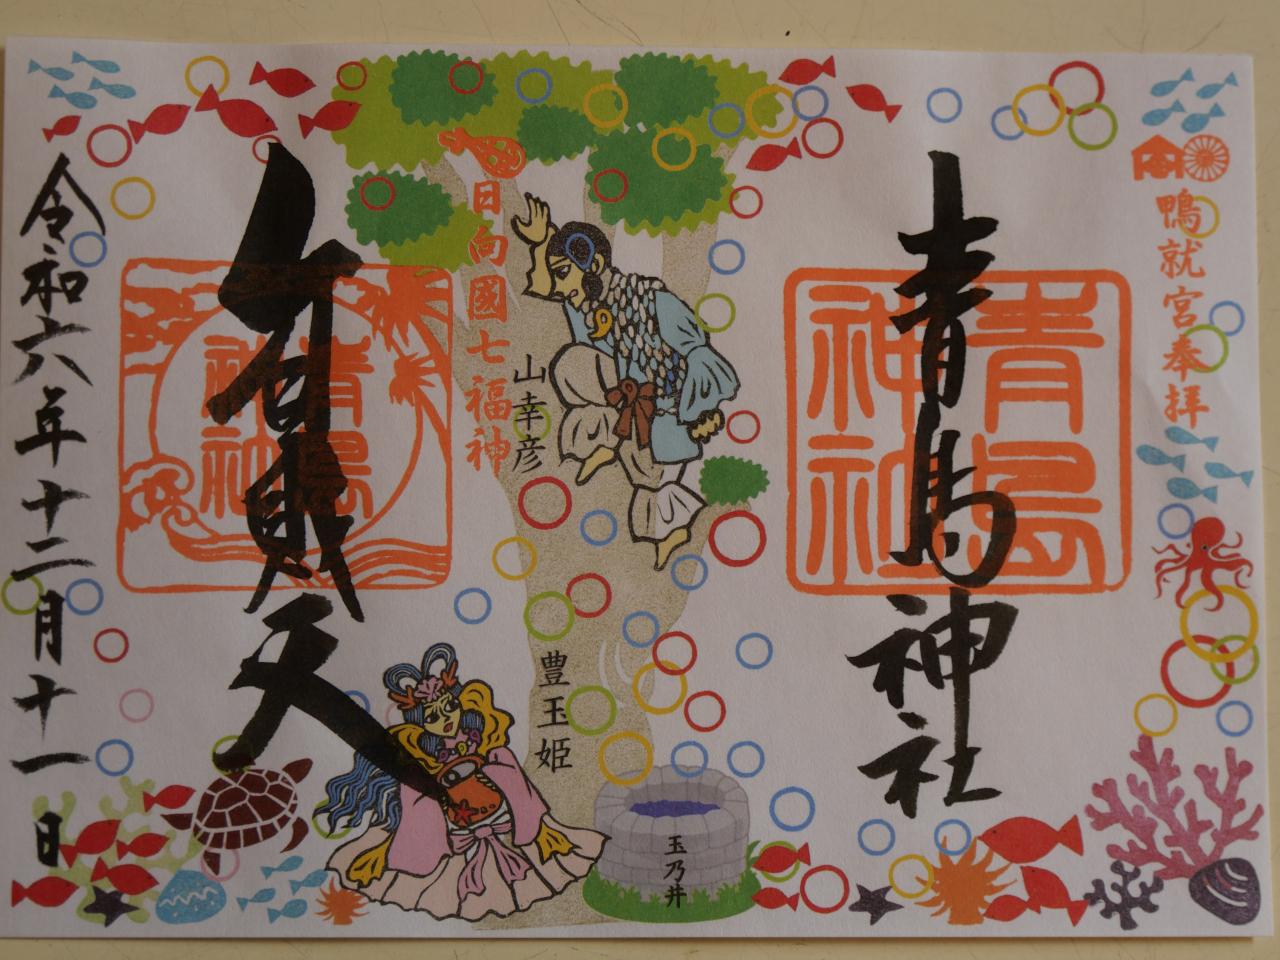 鴨就宮奉拝
青島神社
青島神社
日向國七福神
山幸彦
豊玉姫
玉乃井
弁財天
青島神社
令和六年十二月十一日